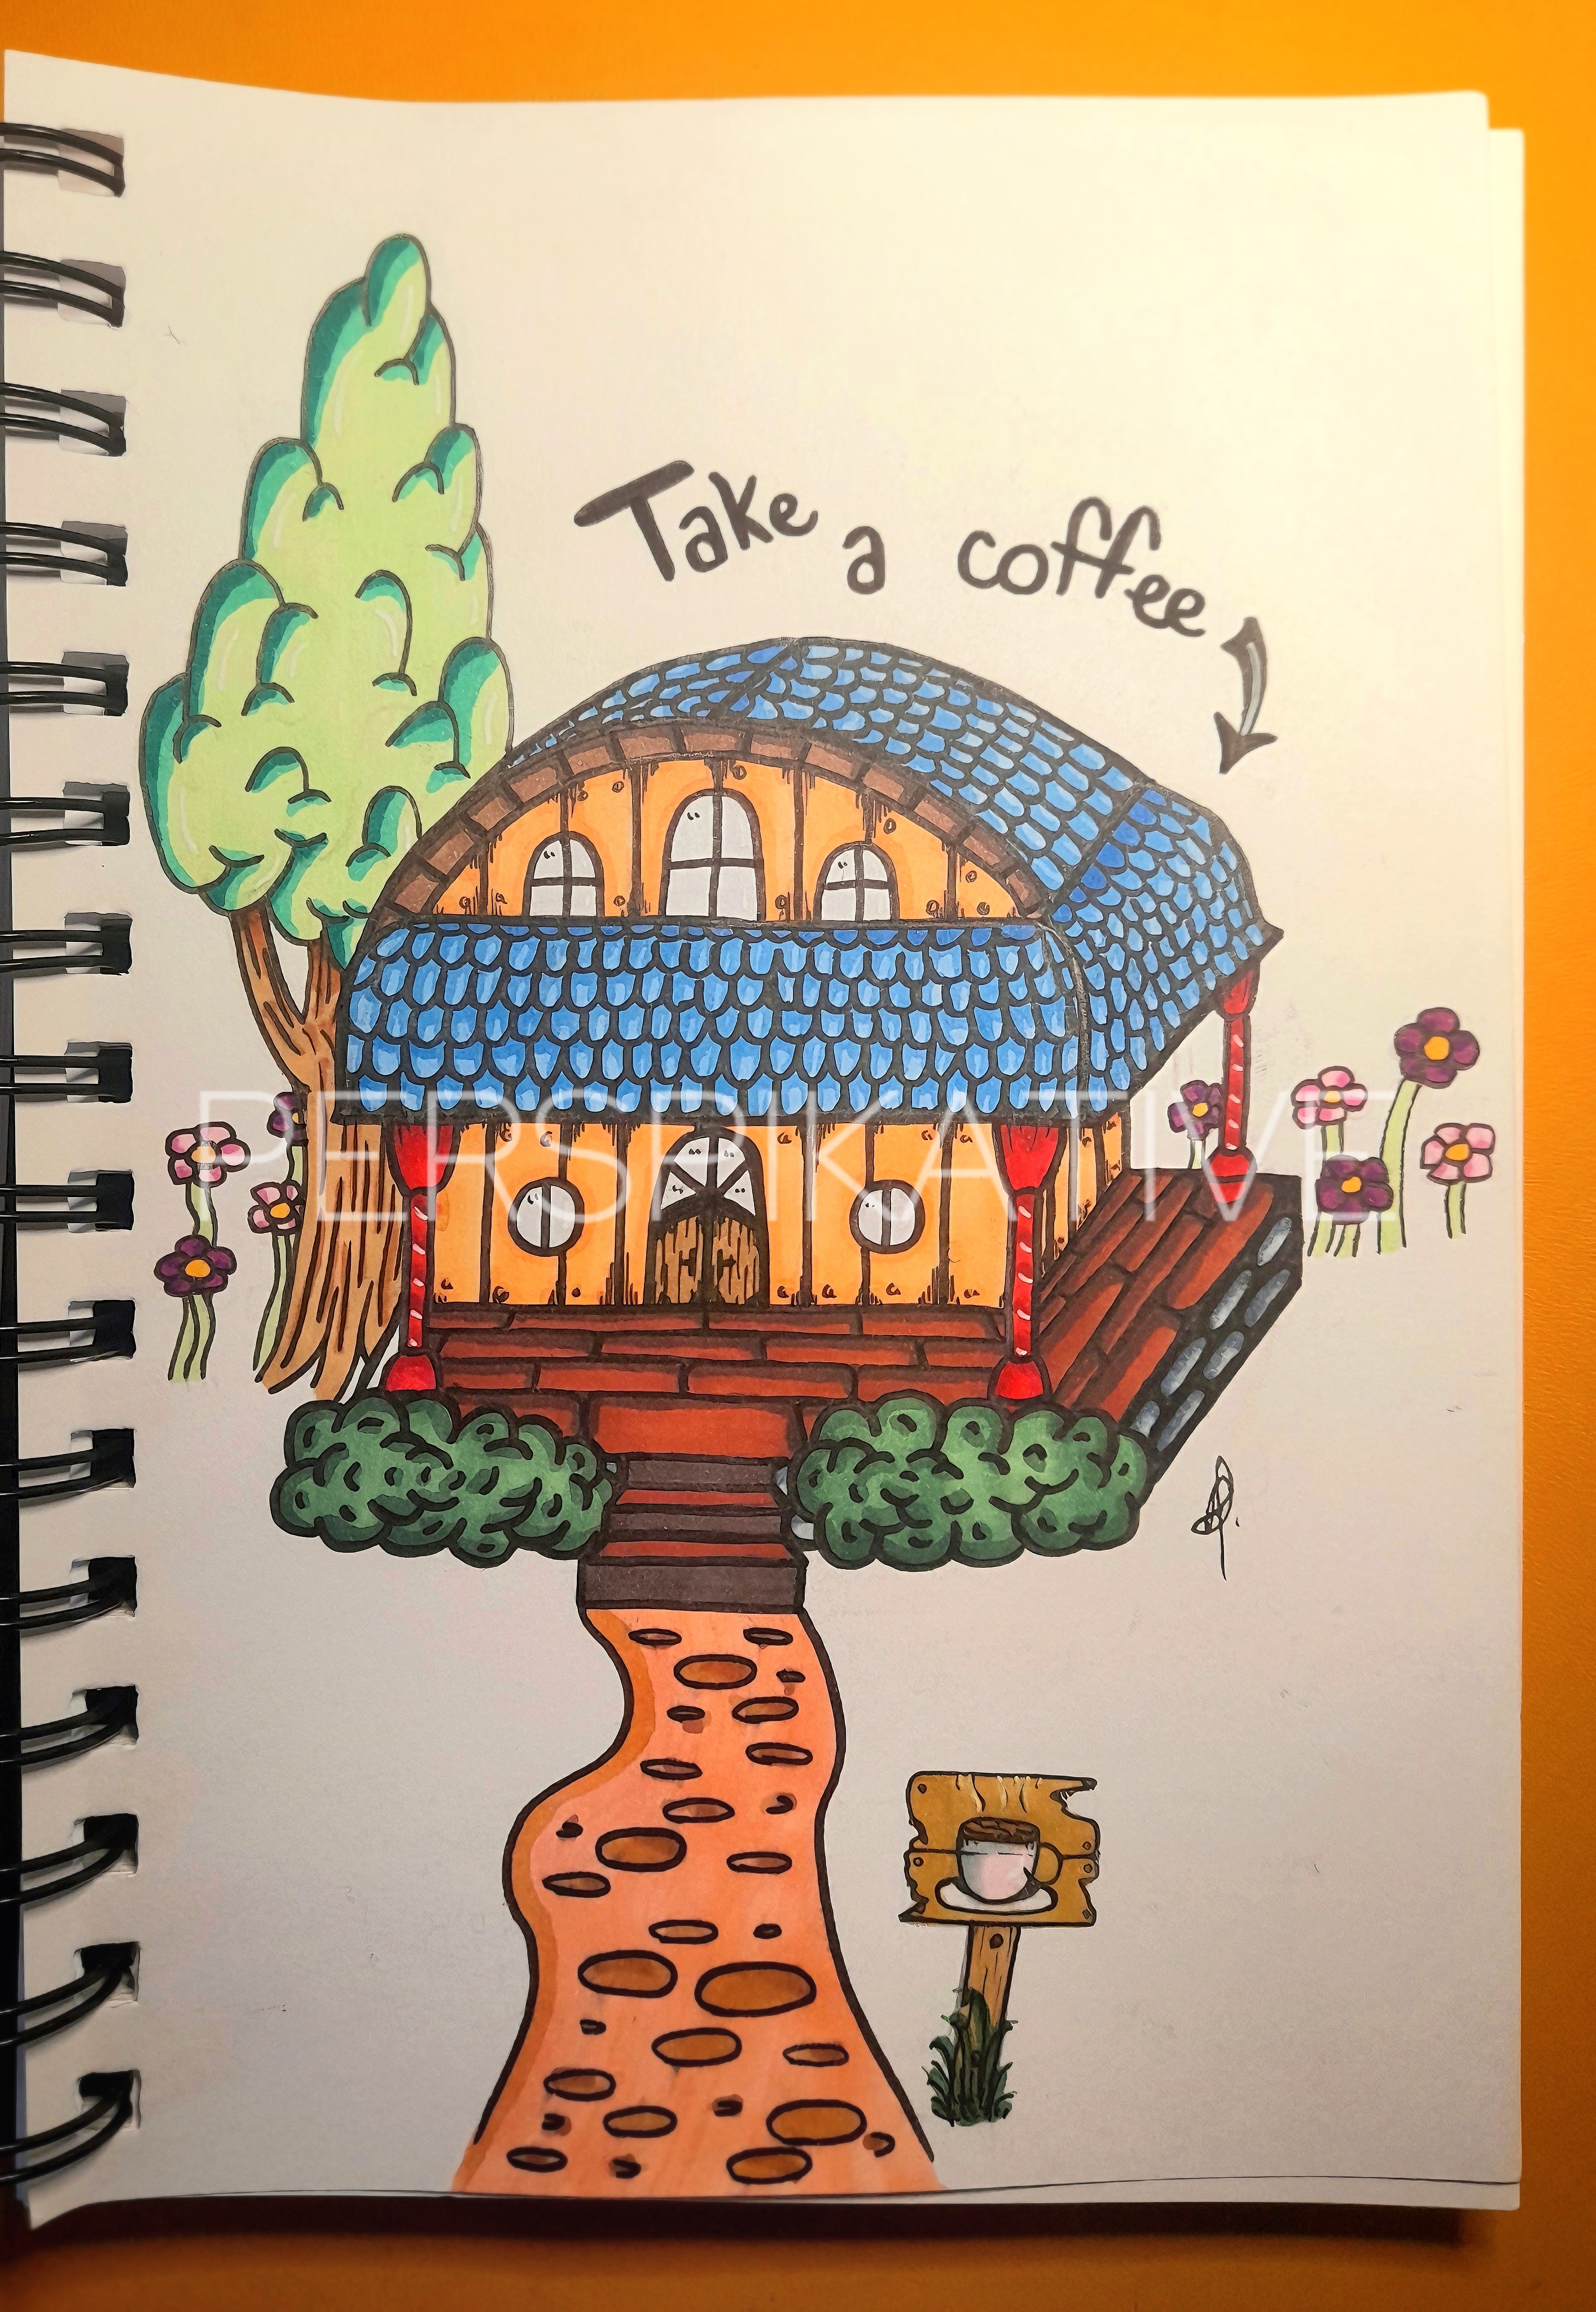 Take a coffee
PERSPIKATIVE